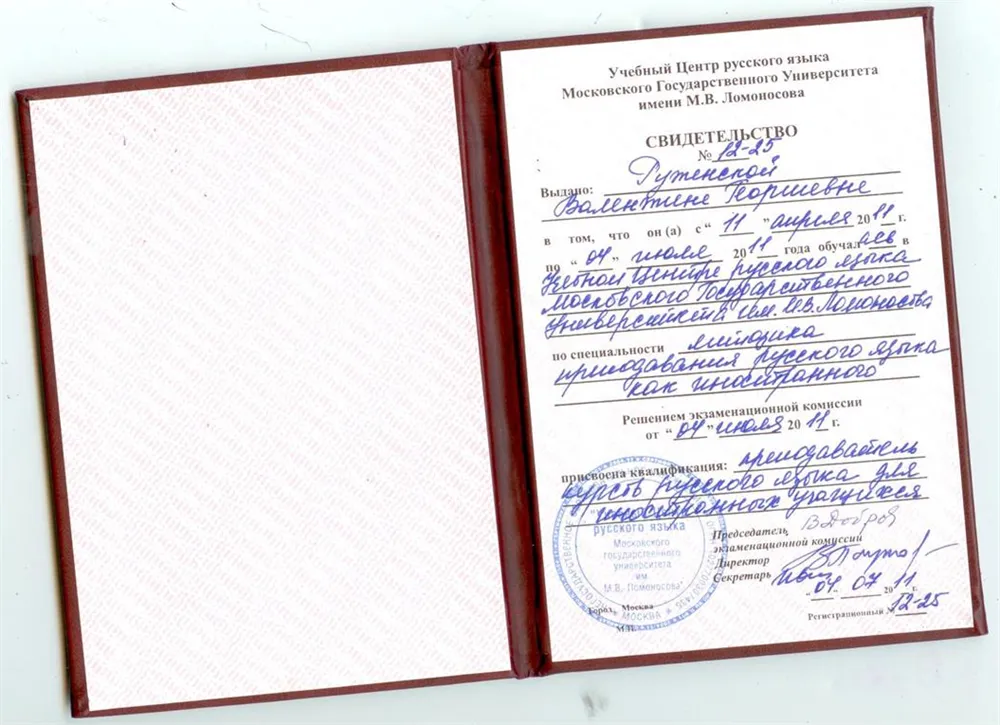 Учебный Центр русского языка
Московского Государственного Университета
имени М.В. Ломоносова
СВИДЕТЕЛЬСТВО
№ 12-25
Выдано: Руженской
Валентине Георгиевне
в том, что он (а) с “ 11 ” апреля 2011 г.
по “ 04 ” июля 2011 года обучалась в
Учебном Центре русского языка
Московского Государственного
Университета им. М.В. Ломоносова
по специальности методика
преподавания русского языка
как иностранного
Решением экзаменационной комиссии
от “ 04 ” июля 20 11 г.
присвоена квалификация: преподаватель
курсов русского языка для
иностранных учащихся
Председатель
экзаменационной комиссии
Директор
Секретарь
“ 04 ” 07 20 11 г.
Регистрационный № 12-25
русского языка
Московского
государственного
университета
им.
М.В. Ломоносова"
МОСКВА
Город Москва
М.П.